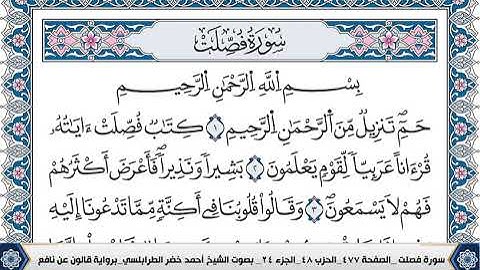 سُورَةُ فُصِّلَتْ
بِسْمِ اِللَّهِ اِلرَّحْمَٰنِ اِلرَّحِيمِ
حَمِٓ تَنزِيلٌ مِّنَ اَلرَّحْمَٰنِ اِلرَّحِيمِ ١ كِتَٰبٌ فُصِّلَتْ ءَايَٰتُهُۥ
قُرْءَاناً عَرَبِيّاً لِّقَوْمٍ يَعْلَمُونَ ٢ بَشِيراً وَنَذِيراً فَأَعْرَضَ أَكْثَرُهُمْ
فَهُمْ لَا يَسْمَعُونَ ٣ وَقَالُواْ قُلُوبُنَا فِي أَكِنَّةٍ مِّمَّا تَدْعُونَا إِلَيْهِ
سورة فصلت_الصفحة ٤٧٧_الحزب ٤٨_الجزء ٢٤_ بصوت الشيخ أحمد خضر الطرابلسي_برواية قالون عن نافع